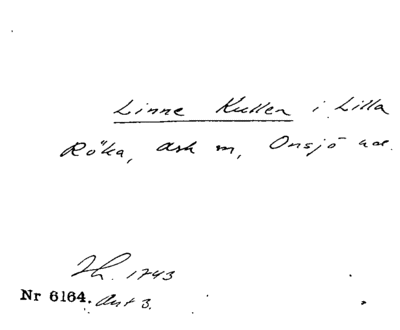 Linne Kullen i Lilla
Röka, Ask m, Onsjö hd.
Th. 1743
Nr 6164. Ant 3.